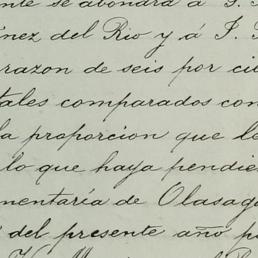 nte se abonará á J. J.
ínez del Rio y á J. J.
razon de seis por ci
tales comparados con
la proporcion que le
lo que haya pendie
mentaría de Olasaga
del presente año p